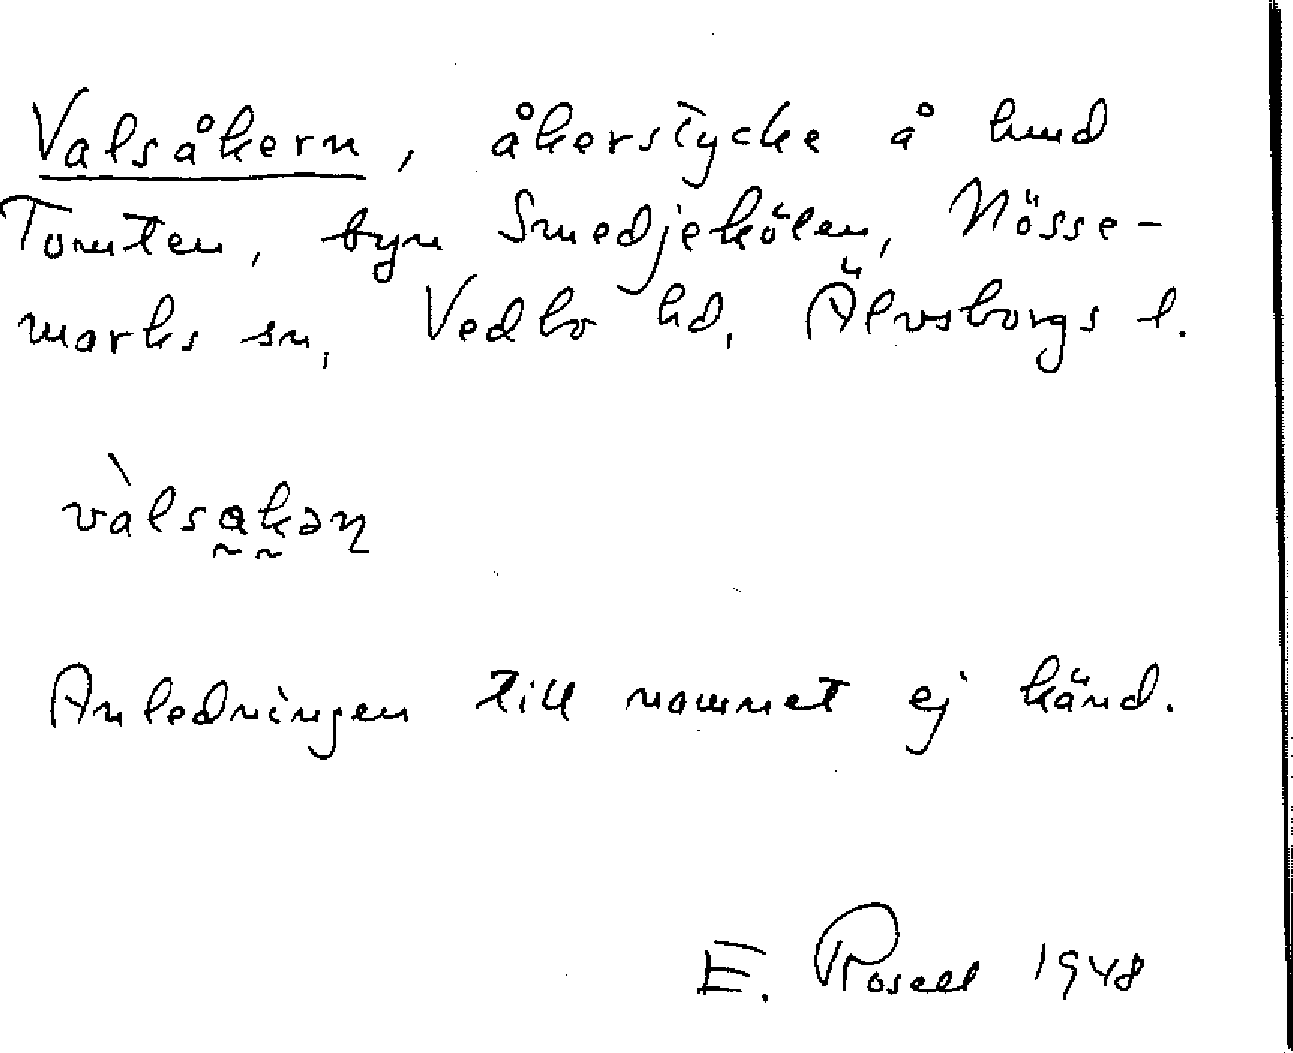 Valsåkern, åkerstycke å hmd
Tomten, byn Smedjekölen, Nösse-
marks sn, Vedbo hd, Älvsborgs l.
vàlsakən
Anledningen till namnet ej känd.
E. Rosell 1948